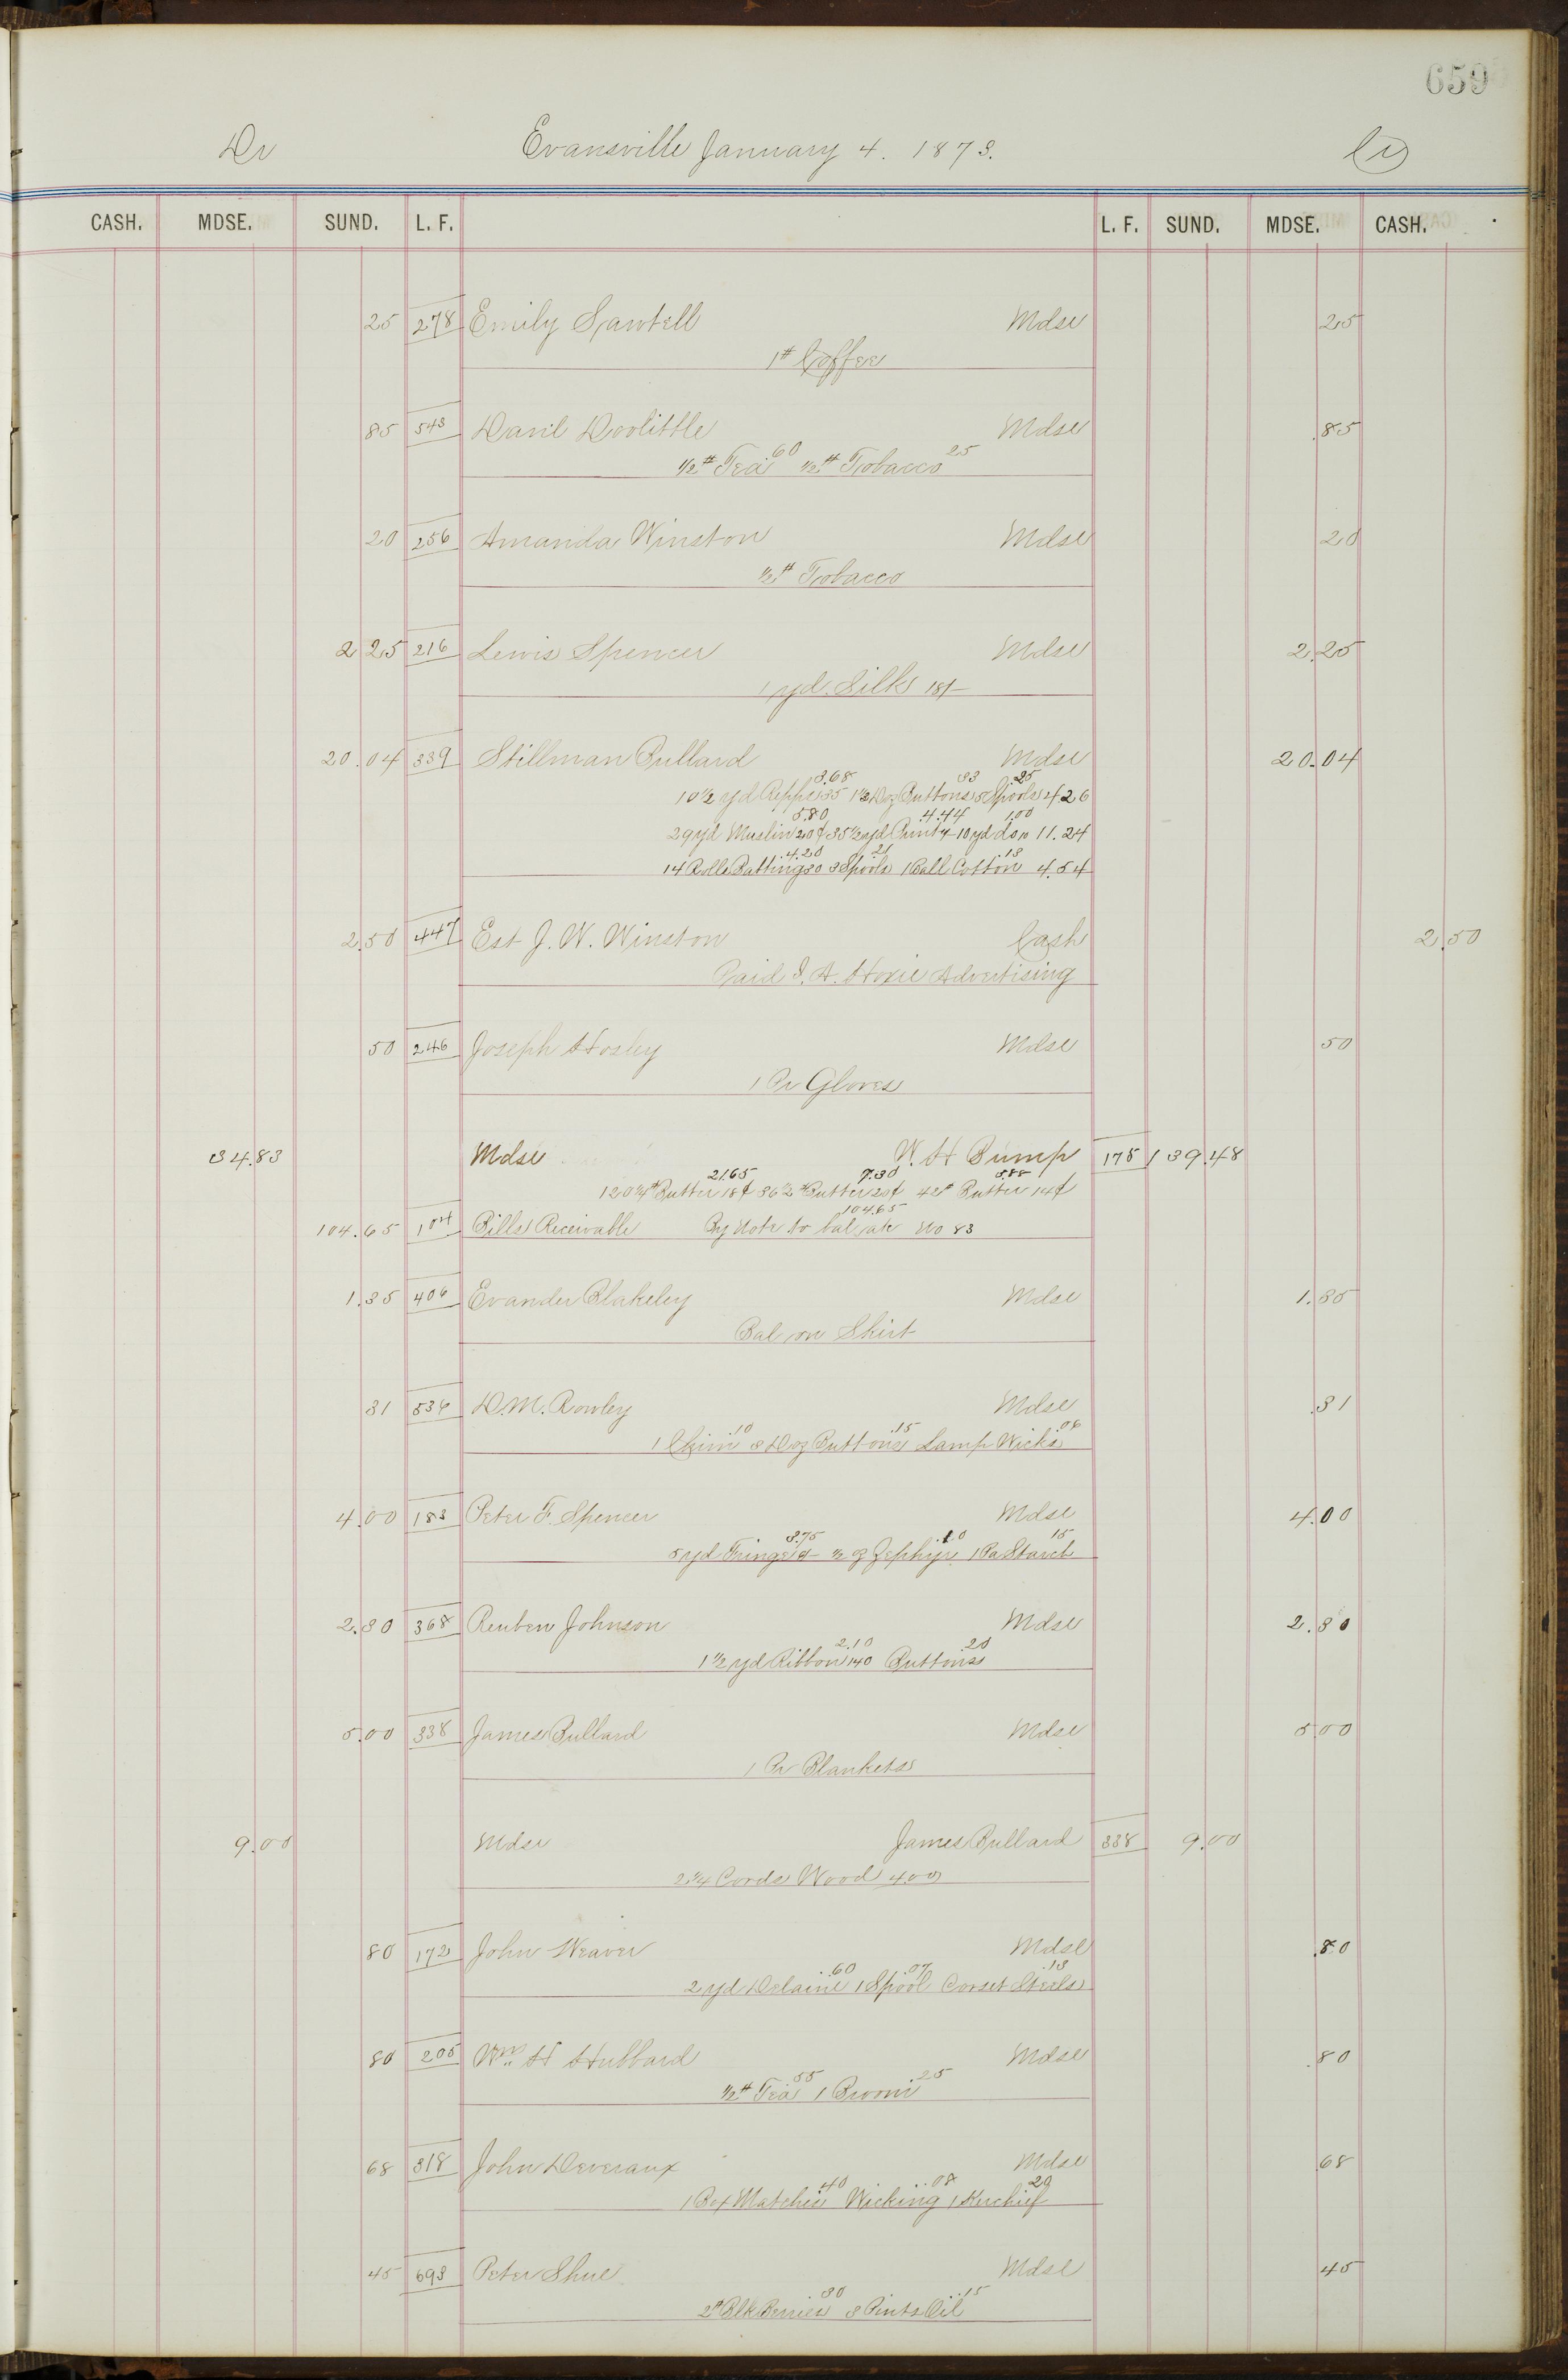 659
Dr Evansville January 4. 1873. Cr
CASH. MDSE. SUND. L. F. L. F. SUND. MDSE. CASH.
25 278 Emily Sawtell Mdse 25
1# Coffee
85 543 Danl Doolittle Mdse .85
1/2# Tea 60 1/2# Tobacco 25
20 256 Amanda Winston Mdse 20
1/2# Tobacco
2 25 216 Lewis Spencer Mdse 2.25
1 yd. Silk 18/-
20.04 339 Stillman Bullard Mdse 20.04
3.68 .33 .25
10 1/2 yd Repps 35 1 1/2 Doz Buttons 5 Spools 4.26
5.80 4.44 1.00
29 yd Muslin 20¢ 35 1/2 yd Print /- 10 yd do 10 11.24
4.20 21 .13
14 Rolls Batting 30 3 Spools 1 Ball Cotton 4.54
2.50 447 Est J. W. Winston Cash 2.50
Paid I. A. Hoxie Advertising
50 246 Joseph Hosley Mdse 50
1 Pr Gloves
34.83 Mdse W. H Bump 175 139.48
21.65 7.30 5.88
120 1/4# Butter 18¢ 36 1/2# Butter 20¢ 42# Butter 14¢
104.65
104.65 104 Bills Receivable By Note to bal a/c No 83
1.35 406 Evander Blakeley Mdse 1.35
Bal on Skirt
31 536 D. M. Rowley Mdse .31
1 Chim 10 3 Doz Buttons .15 Lamp Wicks 06
4.00 183 Peter F. Spencer Mdse 4.00
3.75 .10 15
5 yd Fringe 6/- 1/2 oz Zephyr 1 Pa Starch
2.30 368 Reuben Johnson Mdse 2.30
2.10 20
1 1/2 yd Ribbon 140 Buttons
5.00 338 James Bullard Mdse 5.00
1 Pr Blankets
9.00 Mdse James Bullard 338 9.00
2 1/4 Cords Wood 4.00
80 172 John Weaver Mdse .80
.60 .07 .13
2 yd Delaine 1 Spool Corset Steels
80 205 Wm H Hubbard Mdse .80
1/2# Tea 55 1 Broom 25
68 318 John Deveraux Mdse .68
1 Box Matches 40 Wicking .08 1 Kerchief 20
45 693 Peter Shue Mdse 45
2# Blk Berries 30 3 Pints Oil .15